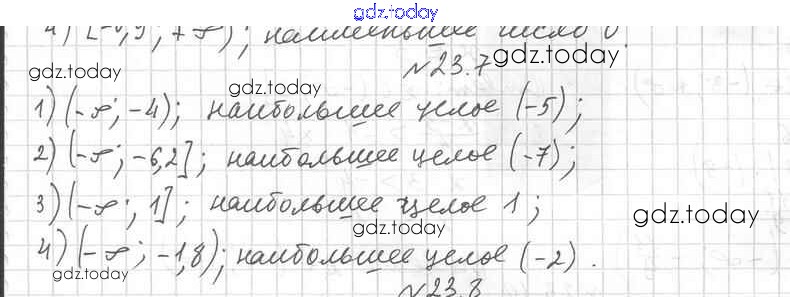 gdz.today
4) [-0,9; +∞); наименьшее число 0.
№23.7 gdz.today
gdz.today
gdz.today
1) (-∞; -4); наибольшее целое (-5);
2) (-∞; -6,2]; наибольшее целое (-7);
3) (-∞; 1]; наибольшее целое 1;
gdz.today
4) (-∞; -1,8); наибольшее целое (-2).
gdz.today
№23.8